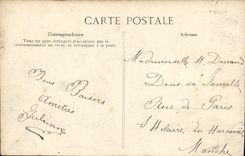 CARTE POSTALE
Correspondance
Tous les pays étrangers n'acceptent pas la
correspondance au recto, se renseigner à la poste
Adresse
Bons Baisers
Amitiés
Mademoiselle M. Durand
Dans sa Famille
Rue de Paris
St Hilaire du Harcouët
Manche